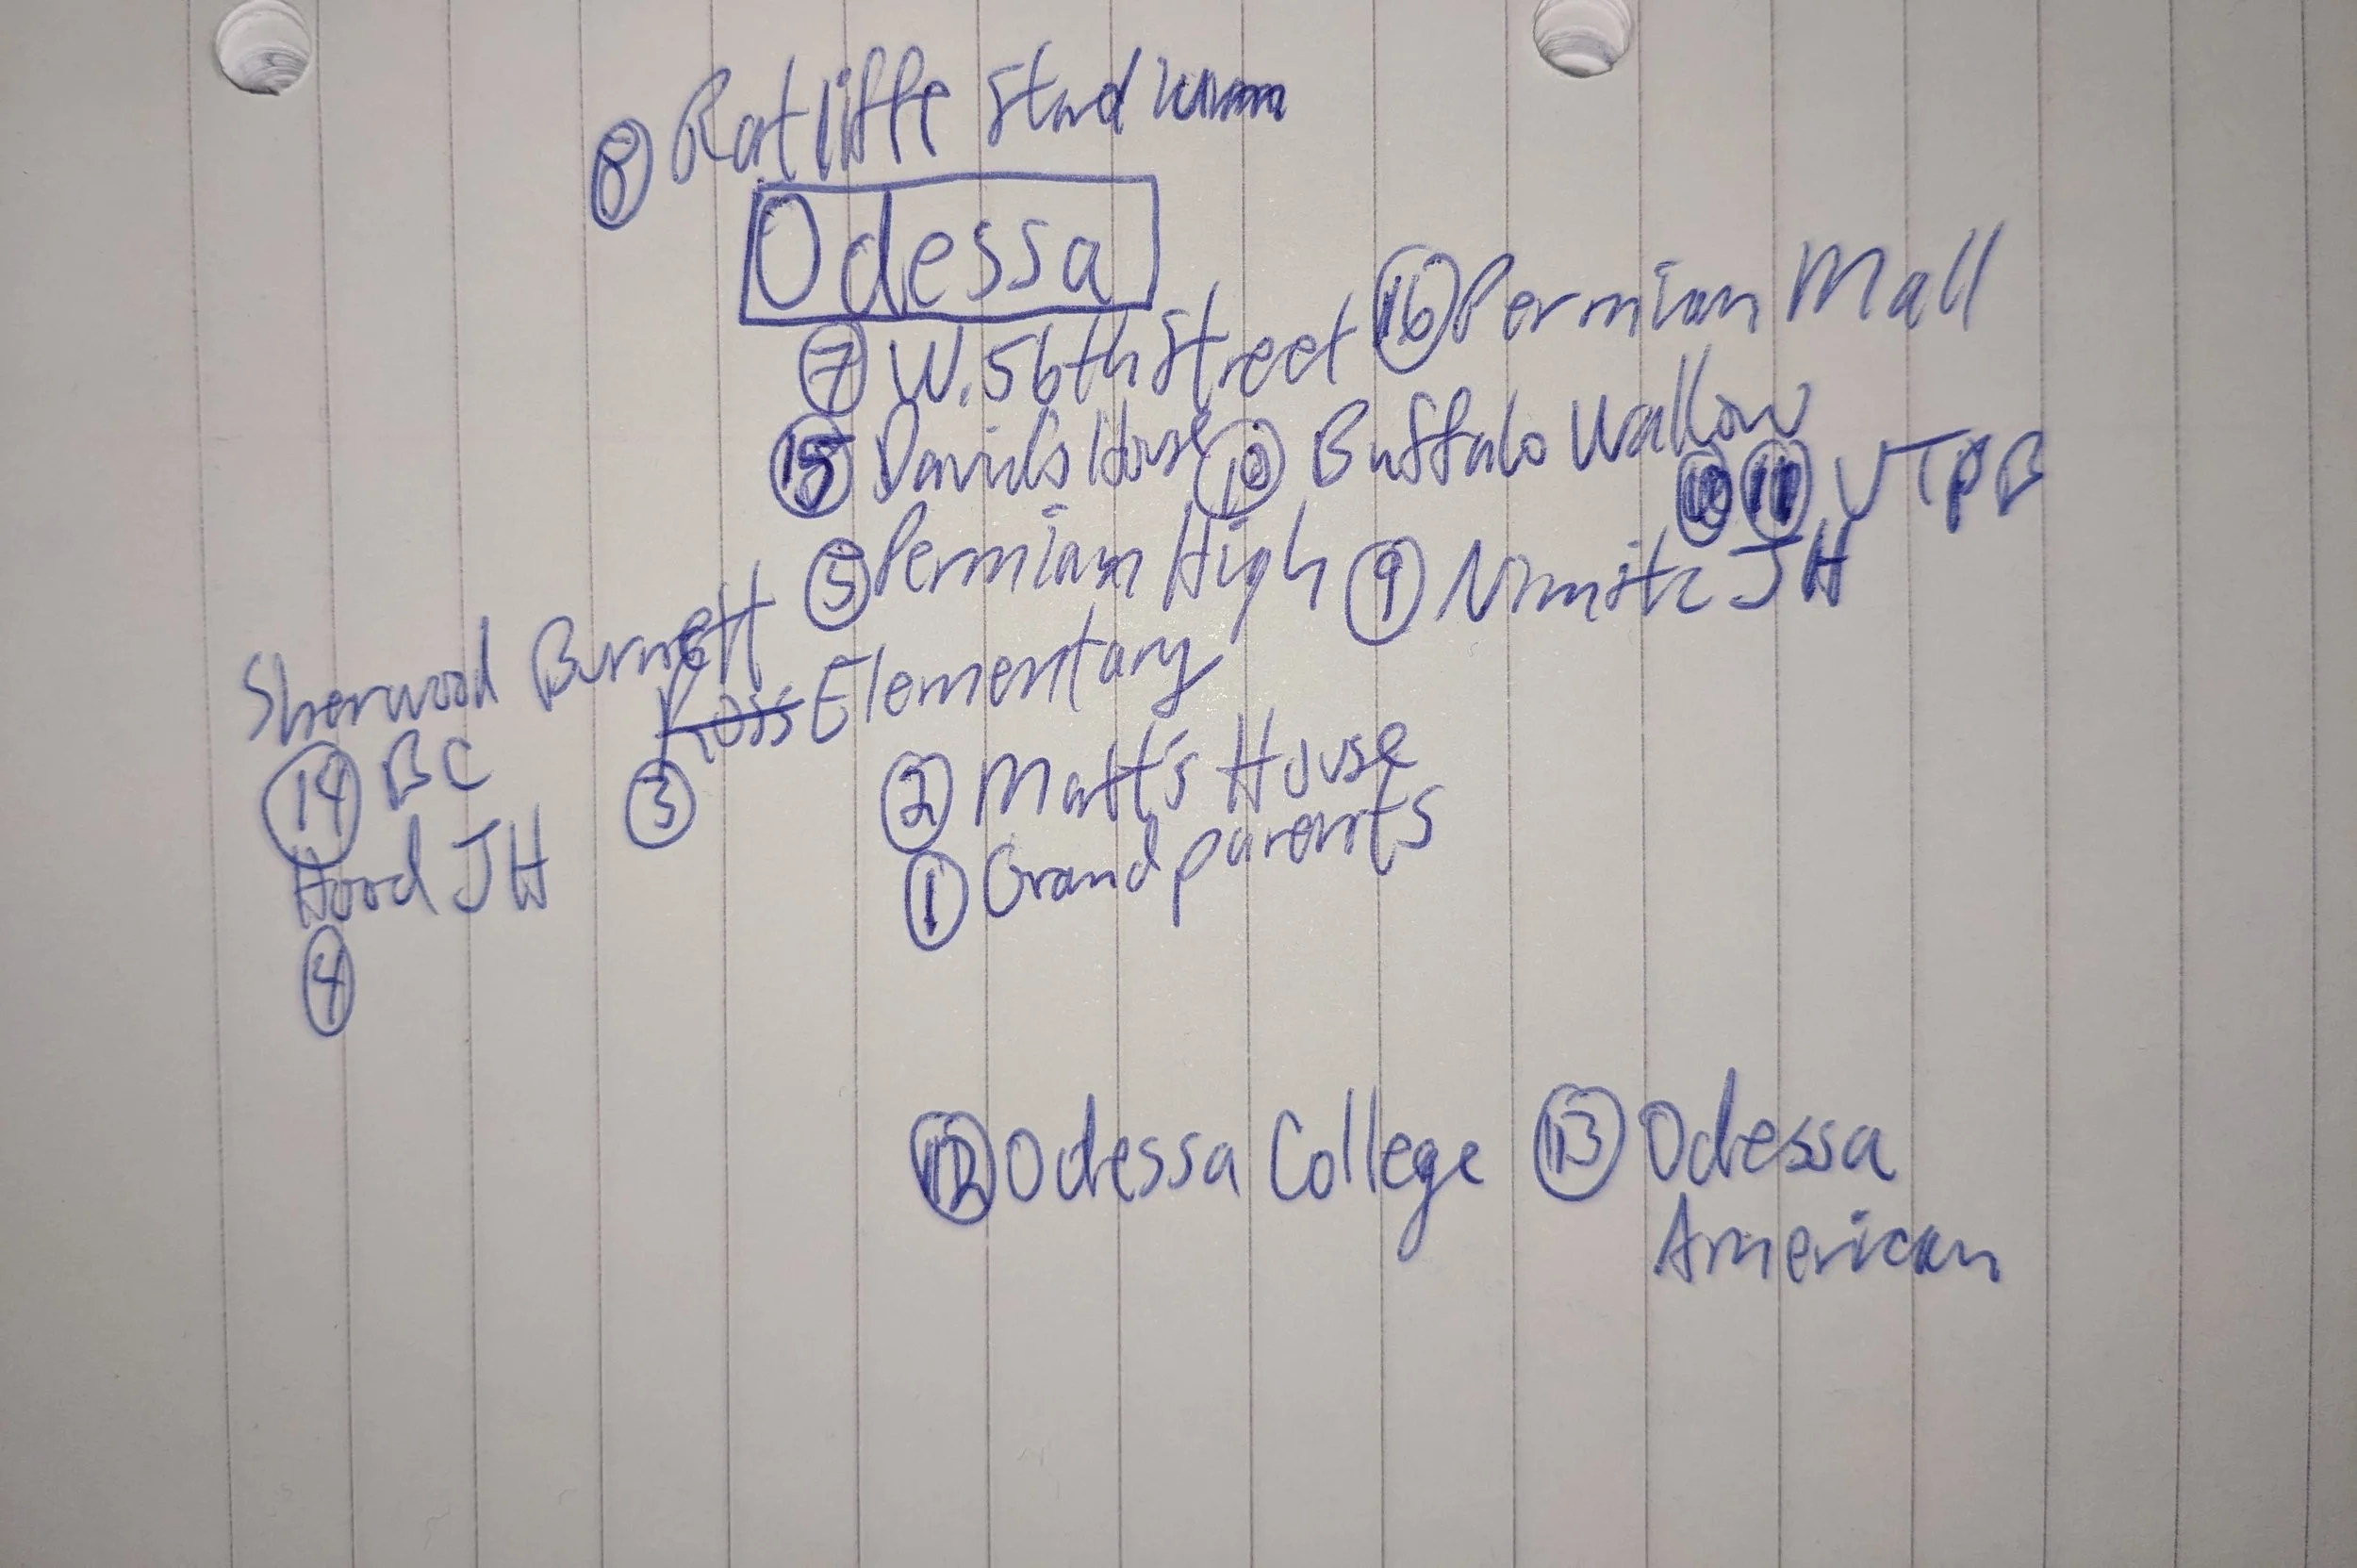 8 Ratliffe Stadium
Odessa
7 W. 56th Street 16 Permian Mall
15 David's House 10 Buffalo Wallow
11 UTPB
5 Permian High 9 Nimitz JH
Sherwood Burnett
Ross Elementary
14 BC 3 2 Matt's House
Hood JH 1 Grandparents
4
12 Odessa College 13 Odessa
American